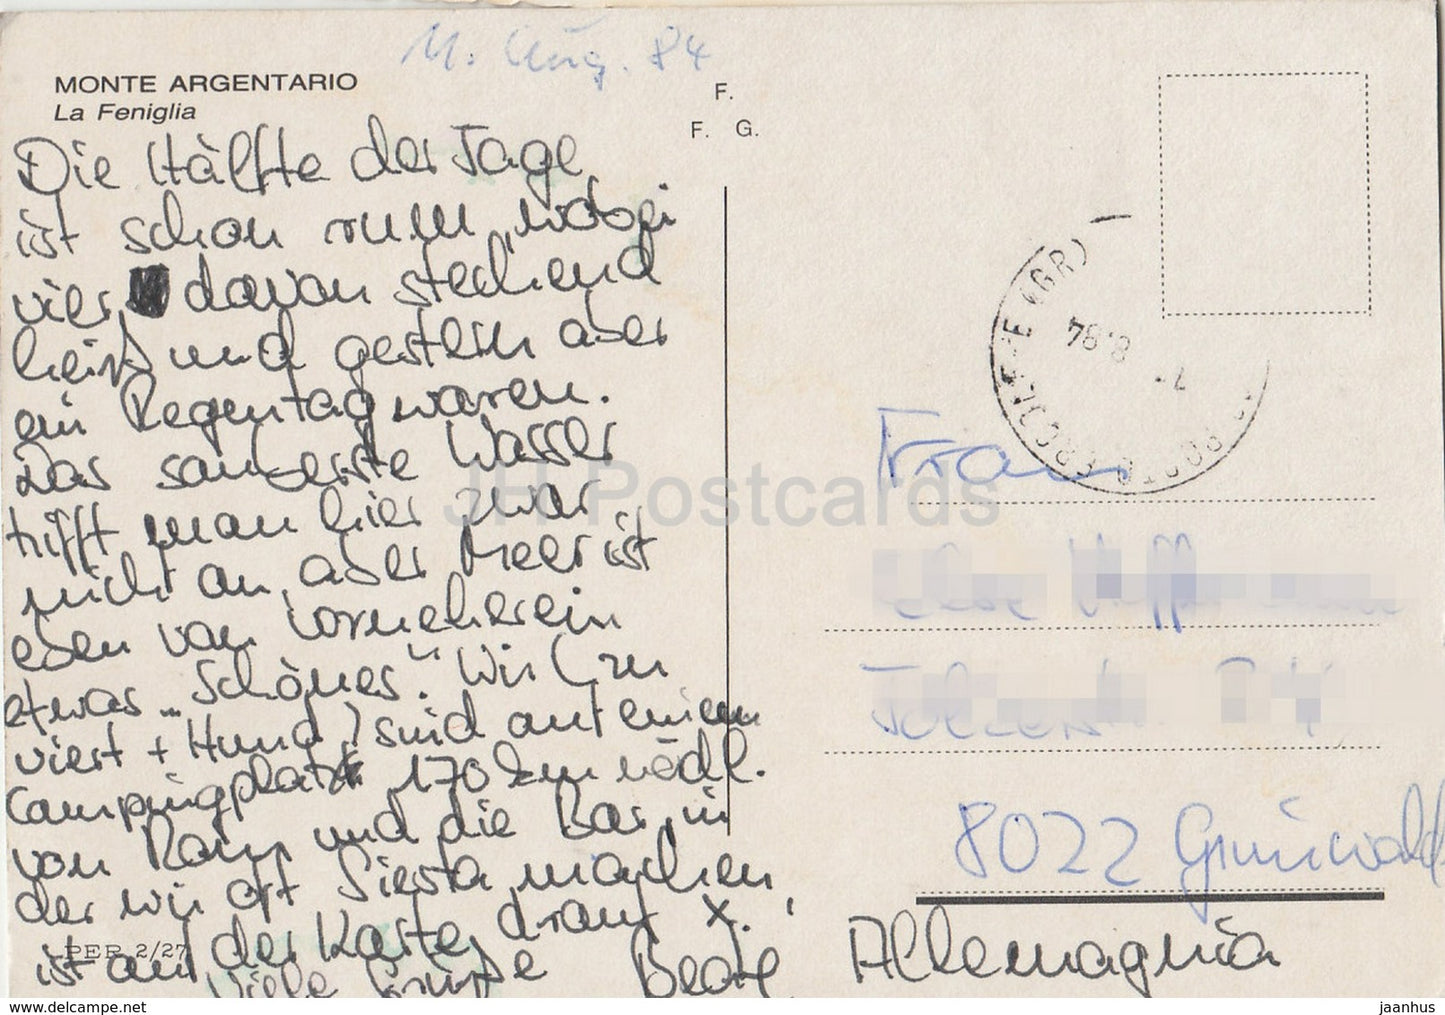 11. Aug. 84
MONTE ARGENTARIO
La Feniglia
F.
F. G.
Die Hälfte der Tage
ist schon rum, wobei
vier davon stechend
heiß und gestern aber
ein Regentag waren.
Das sauberste Wasser
trifft man hier zwar
nicht an, aber Meer ist
eben von vorneherein
etwas "Schönes". Wir (zu
viert + Hund) sind auf einem
Campingplatz 170 km nördl.
von Rom und die Bar, in
der wir oft Siesta machen,
ist auf der Karte drauf X.
Viele Grüße Beate
PER 2/27
(GR)
8.84
Frau
8022 Grünwald
Allemagnia
JH Postcards
www.delcampe.net
jaanhus